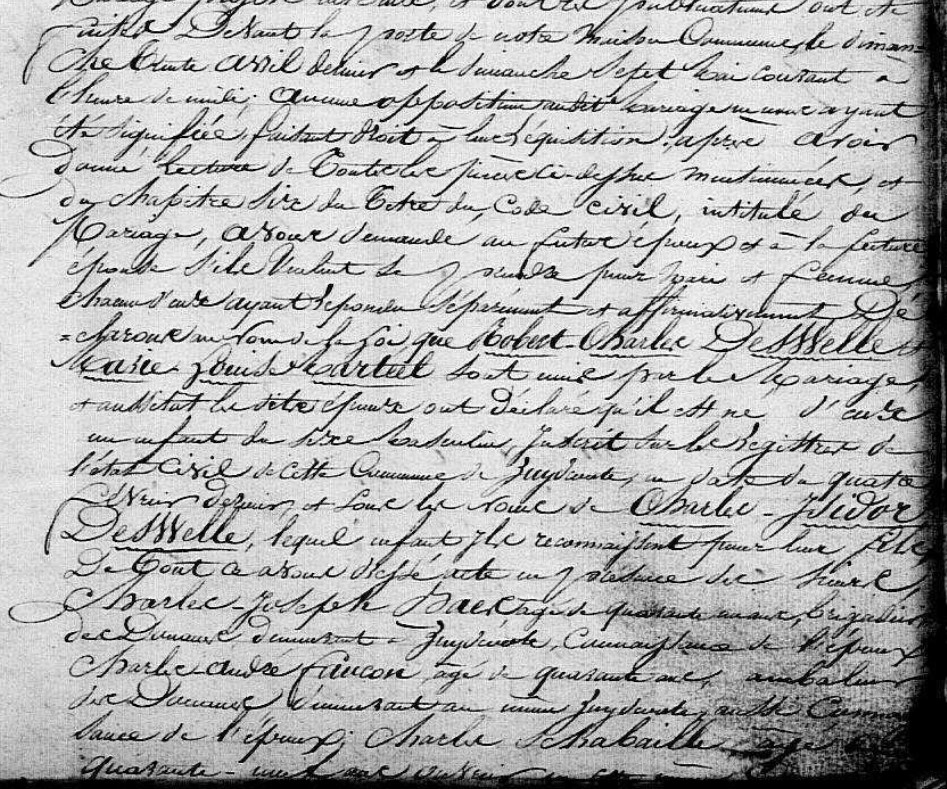 Mariage projeté entre eux, et dont les publications ont été
faites Devant la porte de notre maison Commune, le diman-
che trente avril dernier et le dimanche Sept mai courant à
l'heure de midi; aucune opposition audit mariage ne nous ayant
été signifiée, faisant droit à leur réquisition, après avoir
donné Lecture de Toutes les pièces ci-dessus mentionnées, et
du chapitre Six du Titre du Code civil, intitulé du
Mariage, avons demandé au futur époux et à la future
épouse s'ils Veulent Se prendre pour Mari et femme,
chacun d'eux ayant répondu Séparément et affirmativement Dé
=clarons au Nom de la Loi que Robert-Charles DesWelle et
Marie-Louise Martiel sont unis par le Mariage,
et aussitôt les dits époux ont Déclaré qu'il est né d'eux
un enfant du sexe masculin, Inscrit sur les Registres de
l'état civil de cette Commune de Zuydcoote, en date du quatre
Février dernier, et sous les noms de Charles-Isidor
DesWelle, lequel enfant Ils reconnaissent pour leur fils,
De Tout ce avons dressé acte en présence des Sieurs
Charles-Joseph Baes, âgé de quarante ans, brigadier
des Douanes, demeurant à Zuydcoote, Connaissance de l'époux
Charles andré faucon, âgé de quarante ans, ambulant
des Douanes, demeurant au même Zuydcoote, aussi Connais
sance de l'époux; Charles Schabaille, âgé de
quarante-